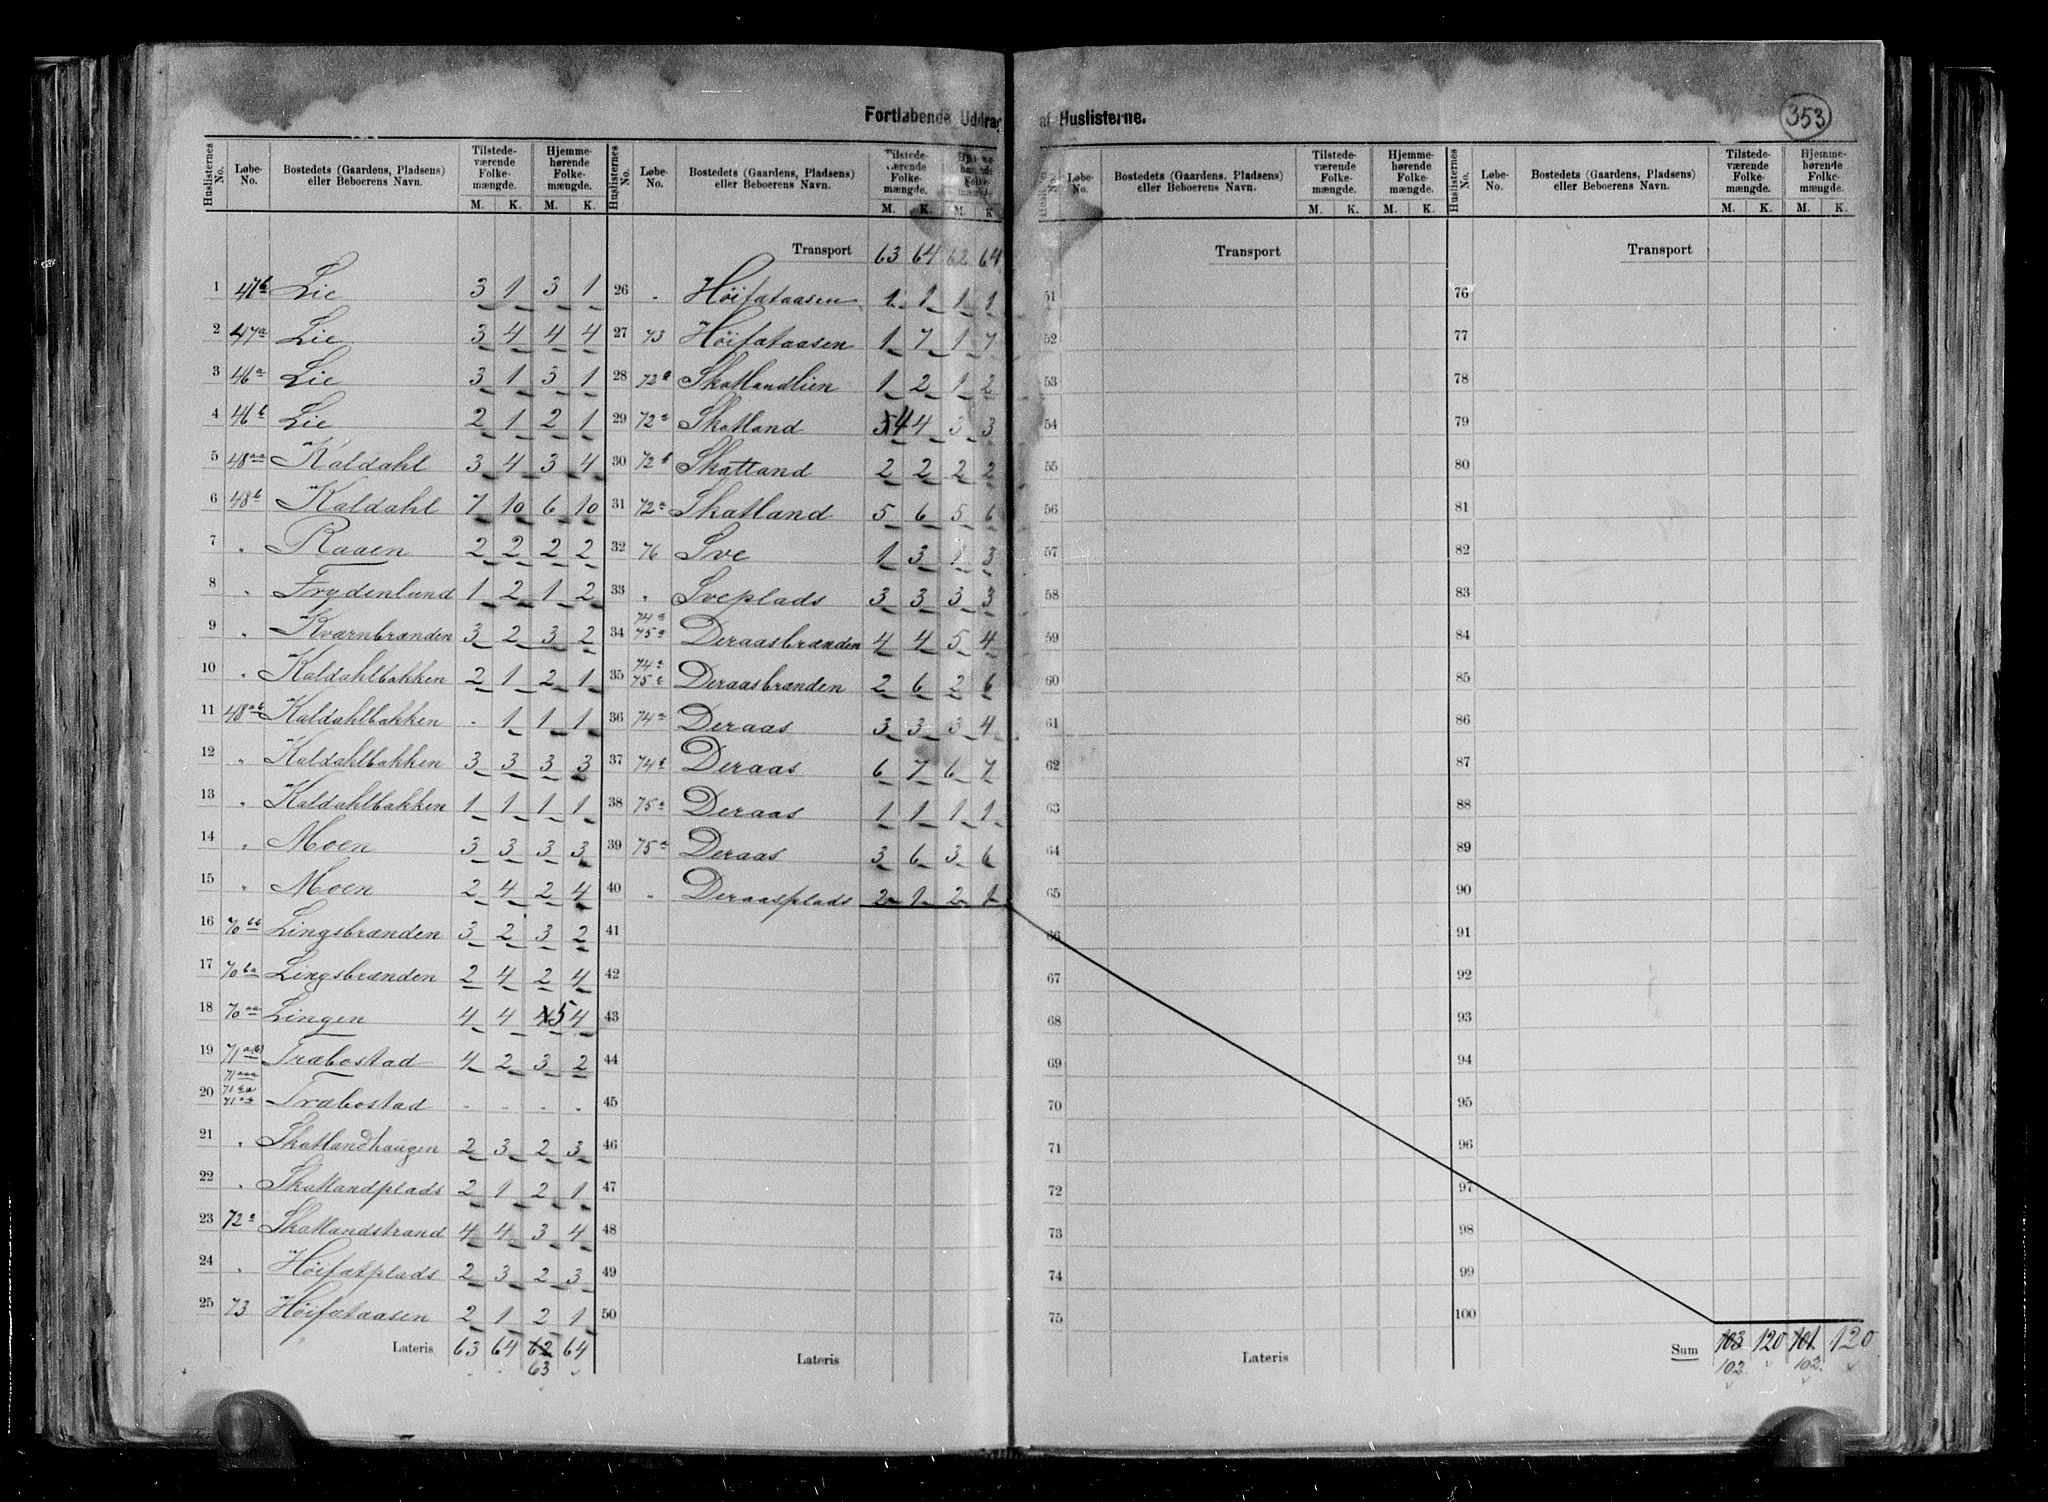 Fortløbende Uddrag af Huslisterne.
353
Huslisternes No. | Løbe-No. | Bostedets (Gaardens, Pladsens) eller Beboerens Navn. | Tilstedeværende Folkemængde. M. K. | Hjemmehørende Folkemængde. M. K.
1 47b Lie 3 1 3 1
2 47a Lie 3 4 4 4
3 46a Lie 3 1 3 1
4 46b Lie 2 1 2 1
5 48aa Kaldahl 3 4 3 4
6 48b Kaldahl 7 10 6 10
7 " Raaen 2 2 2 2
8 " Frydenlund 1 2 1 2
9 " Kværnbrænden 3 2 3 2
10 " Kaldahlbakken 2 1 2 1
11 48ab Kaldahlbakken - 1 1 1
12 " Kaldahlbakken 3 3 3 3
13 " Kaldahlbakken 1 1 1 1
14 " Moen 3 3 3 3
15 " Moen 2 4 2 4
16 70bb Lingsbrænden 3 2 3 2
17 70ba Lingsbrænden 2 4 2 4
18 70aa Lingen 4 4 4 5 4
19 71ab Træbostad 4 2 3 2
20 71aaa Træbostad - - - -
21 " Skatlandhaugen 2 3 2 3
22 " Skatlandplads 2 1 2 1
23 72a Skatlandstrand 4 4 3 4
24 " Høifatplads 2 3 2 3
25 73 Høifataasen 2 1 2 1
Lateris 63 64 62 64
63
Huslisternes No. | Løbe-No. | Bostedets (Gaardens, Pladsens) eller Beboerens Navn. | Tilstedeværende Folkemængde. M. K. | Hjemmehørende Folkemængde. M. K.
Transport 63 64 62 64
26 " Høifataasen 1 1 1 1
27 73 Høifataasen 1 7 1 7
28 72b Skatlandlien 1 2 1 2
29 72a Skatland 5 4 4 3 3
30 72b Skatland 2 2 2 2
31 72a Skatland 5 6 5 6
32 76 Sve 1 3 1 3
33 " Sveplads 3 3 3 3
34 74a 75a Deraasbrænden 4 4 5 4
35 74a 75a Deraasbrænden 2 6 2 6
36 74a Deraas 3 3 3 4
37 74b Deraas 6 7 6 7
38 75a Deraas 1 1 1 1
39 75a Deraas 3 6 3 6
40 " Deraasplads 2 1 2 1
41
42
43
44
45
46
47
48
49
50
Lateris
Huslisternes No. | Løbe-No. | Bostedets (Gaardens, Pladsens) eller Beboerens Navn. | Tilstedeværende Folkemængde. M. K. | Hjemmehørende Folkemængde. M. K.
Transport
51
52
53
54
55
56
57
58
59
60
61
62
63
64
65
66
67
68
69
70
71
72
73
74
75
Lateris
Huslisternes No. | Løbe-No. | Bostedets (Gaardens, Pladsens) eller Beboerens Navn. | Tilstedeværende Folkemængde. M. K. | Hjemmehørende Folkemængde. M. K.
Transport
76
77
78
79
80
81
82
83
84
85
86
87
88
89
90
91
92
93
94
95
96
97
98
99
100
Sum 103 120 101 120
102 102